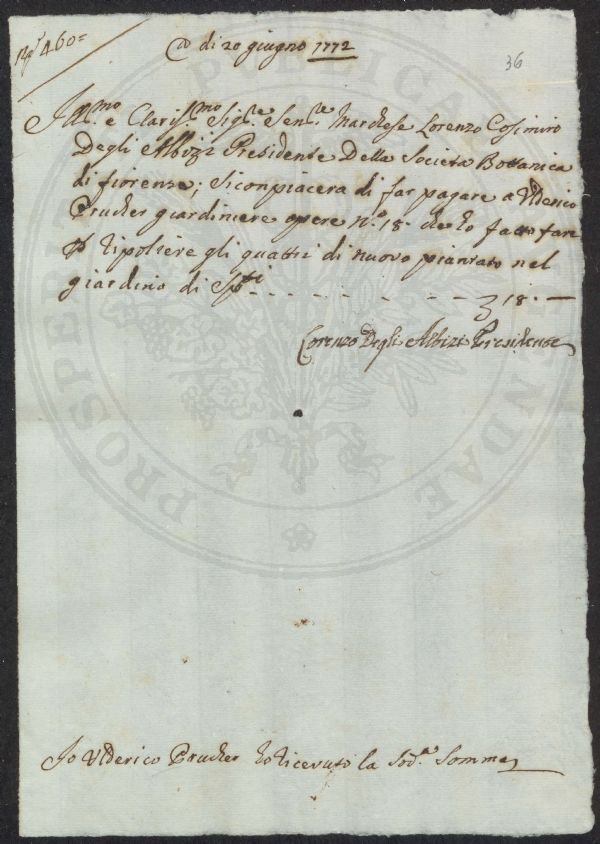 460=
36
A di 20 giugno 1772
Ill.mo e Claris.mo Sig.re Sen.re Marchese Lorenzo Cosimiro
Degli Albizi Presidente Della Societa Bottanica
di fiorenze; Si conpiacera di far pagare a Vlderico
Prucker giardiniere opere n.o 18 che ho fatto fare
p ripoliere gli quattri di nuovo piantato nel
giardino di - - - - - - - - - 18. —
Lorenzo Degli Albizi Presidente
Io Vlderico Prucker ho ricevuto la Sod.a Somma
PROSPERITATI PUBLICAE AUGENDAE